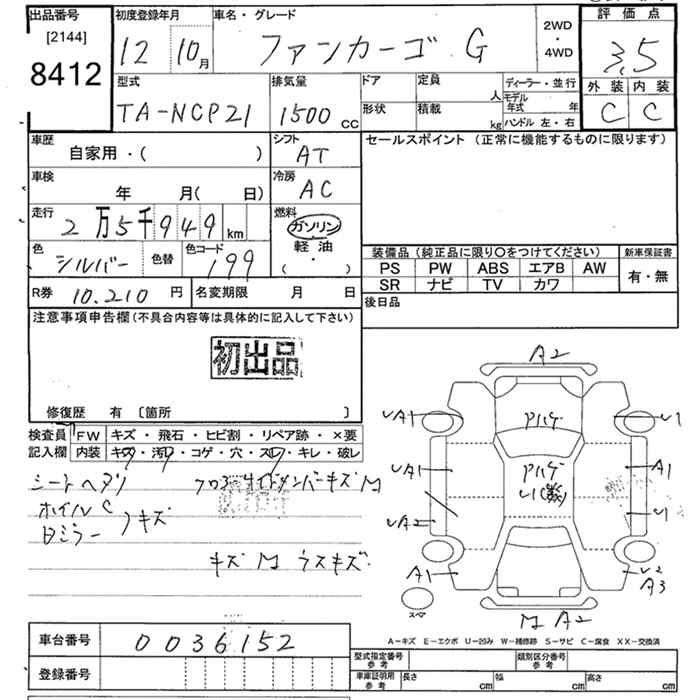 出品番号
[2144]
8412
初度登録年月
12 10月
車名・グレード
ファンカーゴ G
2WD
・
4WD
評価点
3.5
外装 内装
C C
型式
TA-NCP21
排気量
1500 cc
ドア
形状
定員
人
積載
kg
ディーラー・並行
モデル年式 年
ハンドル 左・右
車歴
自家用・( )
シフト
AT
車検
年 月( 日)
冷房
AC
走行
2万5千949km
燃料
ガソリン
軽油
( ・ )
色
シルバー
色替
色コード
199
R券 10.210 円
名変期限 月 日
セールスポイント (正常に機能するものに限ります)
装備品 (純正品に限り○をつけてください)
PS PW ABS エアB AW
SR ナビ TV カワ
新車保証書
有・無
後日品
注意事項申告欄(不具合内容等は具体的に記入して下さい)
初出品
修復歴 有 〔箇所 〕
検査員記入欄
FW キズ・飛石・ヒビ割・リペア跡・×要
内装 キズ・汚レ・コゲ・穴・スレ・キレ・破レ
シートヘタリ
ホイルC
キズ
キズ M ウスキズ
A2
UA1
Pハゲ
U1
UA1
Pハゲ
A1
UA2
U1
A1
U2
A3
スペア
M A2
A-キズ E-エクボ U-凹み W-補修跡 S-サビ C-腐食 XX-交換済
車台番号 0036152
登録番号
型式指定番号
参考
類別区分番号
参考
車庫証明用
参考
長さ cm 幅 cm 高さ cm